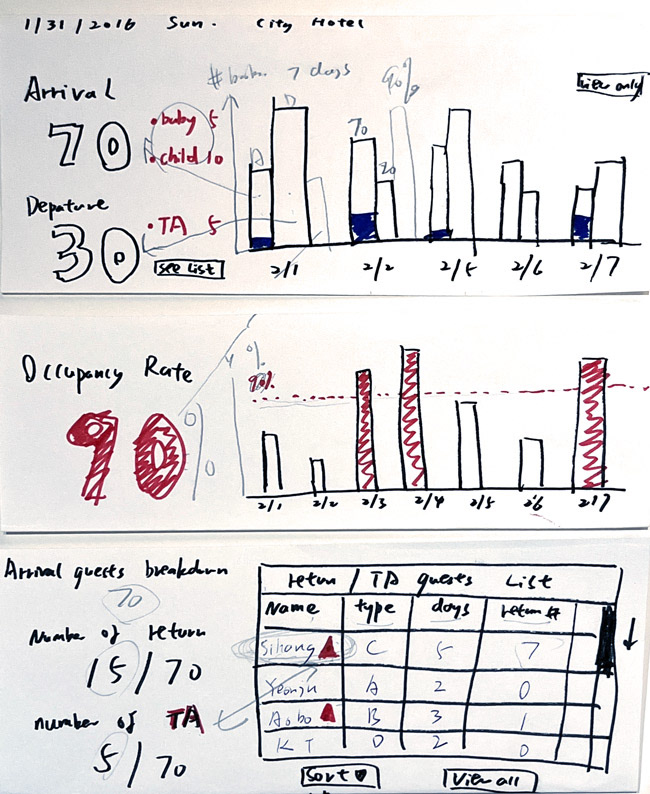 1/31/2016 Sun. City Hotel
# 7 days
90%
View only
Arrival
70
• baby 5
• child 10
A
D
70
20
Depature
30
• TA 5
see List
2/1 2/2 2/5 2/6 2/7
Occupancy Rate
90%
%
90%
2/1 2/2 2/3 2/4 2/5 2/6 2/7
Arrival guests breakdown
70
Number of return
15/70
number of TA
5/70
return / TA guests List
Name type days return #
Sihong C 5 7
Yeonju A 2 0
Aobo B 3 1
K T D 2 0
Sort
View all